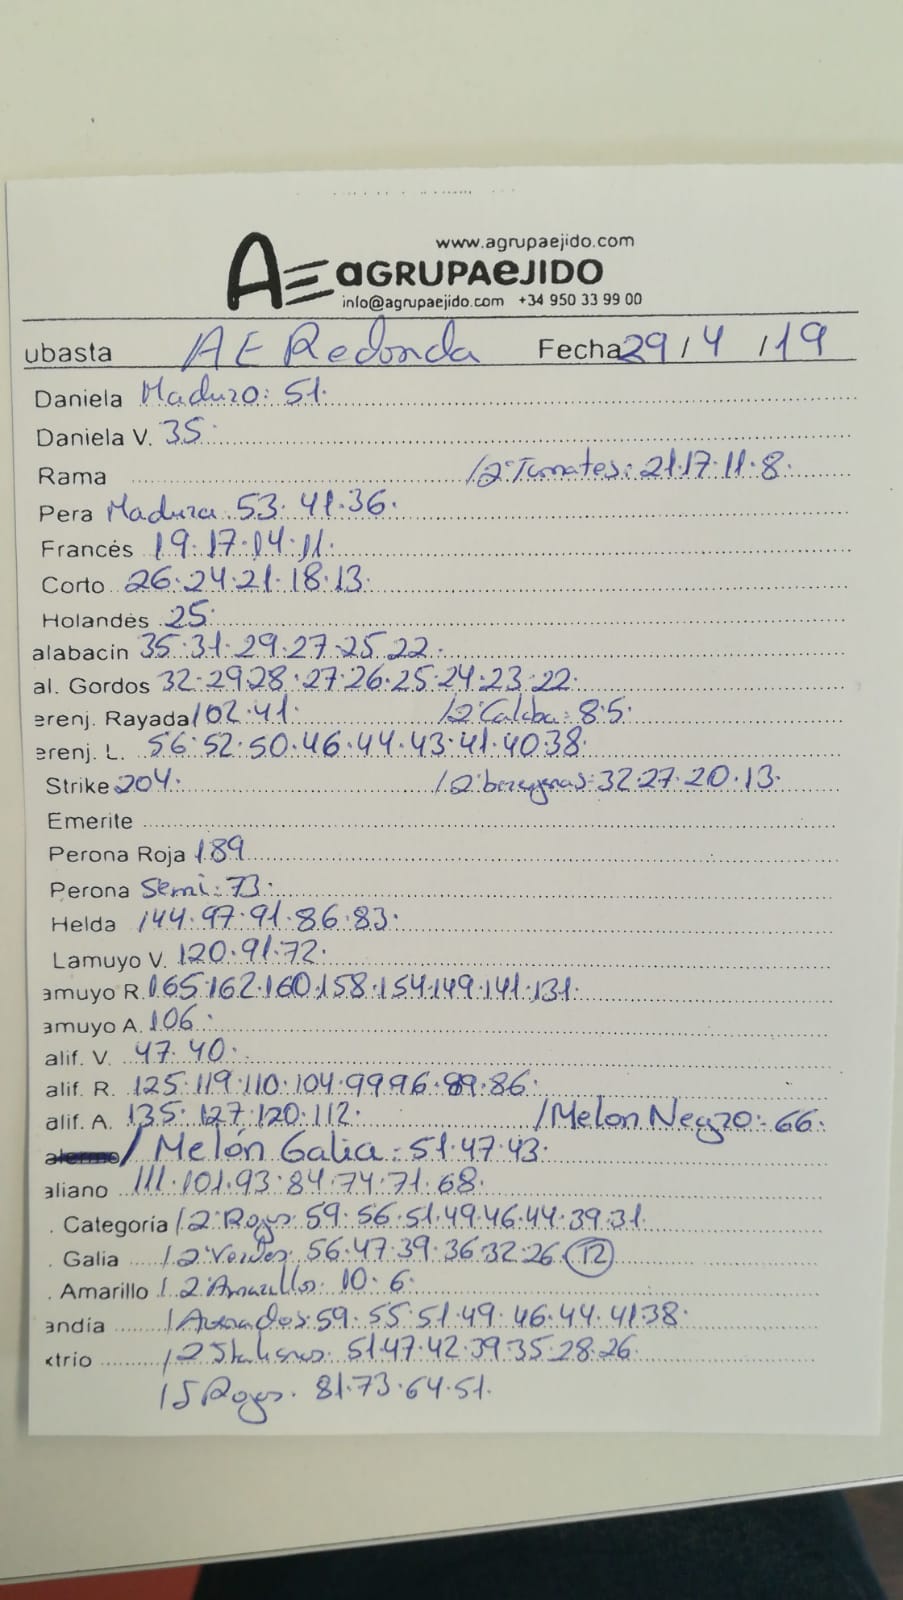 www.agrupaejido.com
AE aGRUPAeJIDO
info@agrupaejido.com +34 950 33 99 00
ubasta AE Redonda Fecha 29/4/19
Daniela Maduro: 51.
Daniela V. 35.
Rama /2ª Tomates: 21.17.11.8.
Pera Madura 53.41.36.
Francés 19.17.14.11.
Corto 26.24.21.18.13.
Holandés 25.
alabacín 35.31.29.27.25.22.
al. Gordos 32.29.28.27.26.25.24.23.22.
erenj. Rayada 102.41. /2ª Calaba: 8.5.
erenj. L. 56.52.50.46.44.43.41.40.38.
Strike 204. /2ª berenjenas: 32.27.20.13.
Emerite
Perona Roja 189
Perona Semi: 73.
Helda 144.97.91.86.83.
Lamuyo V. 120.91.72.
amuyo R. 165.162.160.158.154.149.141.131.
amuyo A. 106.
alif. V. 47.40.
alif. R. 125.119.110.104.99.96.89.86.
alif. A. 135.127.120.112. /Melon Negro: 66.
/ Melón Galia: 51.47.43.
aliano 111.101.93.84.74.71.68.
. Categoría /2ª Rojos: 59.56.51.49.46.44.39.31.
. Galia /2ª Verdes: 56.47.39.36.32.26. (T2)
. Amarillo /2ª Amarillos: 10.6.
andía /Asurados: 59.55.51.49.46.44.41.38.
xtrio /2ª Italianos. 51.47.42.39.35.28.26.
/S Rojos. 81.73.64.51.